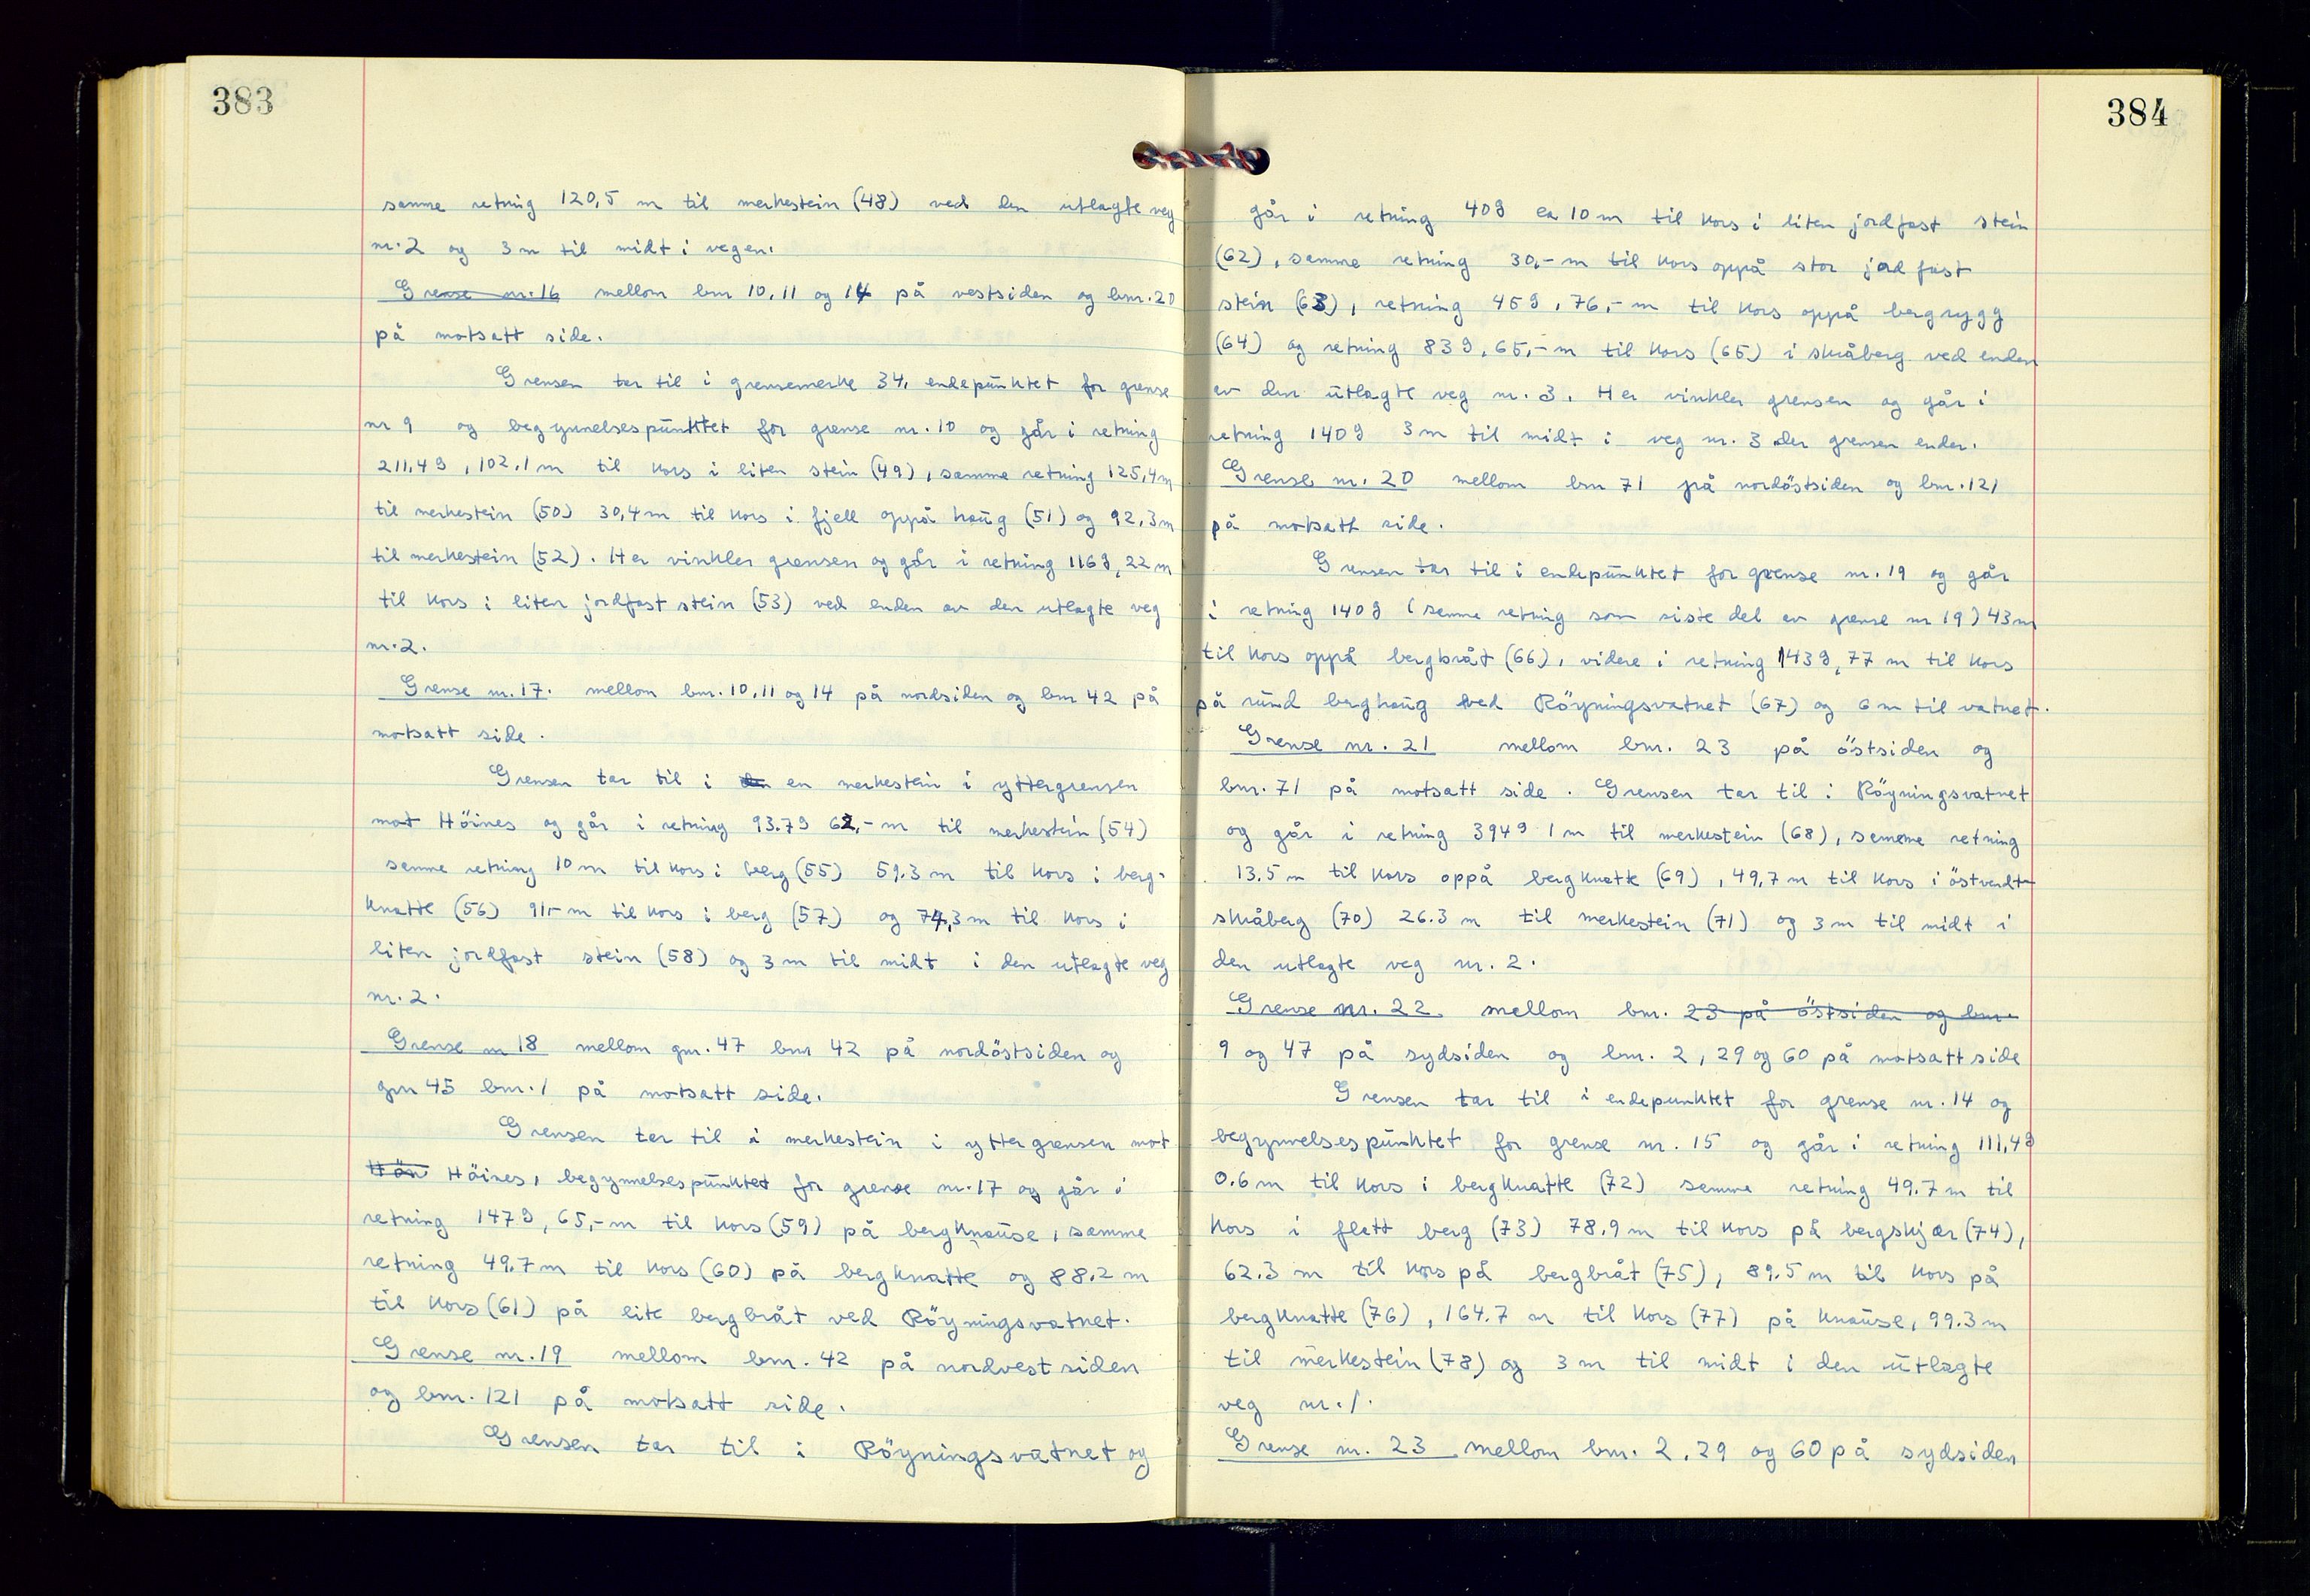 383
samme retning 120,5 m til merkestein (48) ved den utlagte veg
nr. 2 og 3 m til midt i vegen.
Grense nr. 16 mellom bnr 10, 11 og 14 på vestsiden og bnr. 20
på motsatt side.
Grensen tar til i grensemerke 34, endepunktet for grense
nr 9 og begynnelsespunktet for grense nr. 10 og går i retning
211,4g, 102,1 m til kors i liten stein (49), samme retning 125,4 m
til merkestein (50) 30,4 m til kors i fjell oppå haug (51) og 92,3 m
til merkestein (52). Her vinkler grensen og går i retning 116g, 22 m
til kors i liten jordfast stein (53) ved enden av den utlagte veg
nr. 2.
Grense nr. 17. mellom bnr. 10, 11 og 14 på nordsiden og bnr 42 på
motsatt side.
Grensen tar til i en merkestein i yttergrensen
mot Höines og går i retning 93.7g 62,- m til merkestein (54)
samme retning 10 m til kors i berg (55) 59.3 m til kors i berg-
knatte (56) 91,- m til kors i berg (57) og 74,3 m til kors i
liten jordfast stein (58) og 3 m til midt i den utlagte veg
nr. 2.
Grense nr 18 mellom gnr. 47 bnr 42 på nordöstsiden og
gnr 45 bnr. 1 på motsatt side.
Grensen tar til i merkestein i yttergrensen mot
Hön Höines, begynnelsespunktet for grense nr. 17 og går i
retning 147g, 65,- m til kors (59) på bergknause, samme
retning 49.7 m til kors (60) på bergknatte og 88.2 m
til kors (61) på lite bergbråt ved Röyningsvatnet.
Grense nr. 19 mellom bnr. 42 på nordvestsiden
og bnr. 121 på motsatt side.
Grensen tar til i Röyningsvatnet og
384
går i retning 40g ca 10 m til kors i liten jordfast stein
(62), samme retning 30,- m til kors oppå stor jordfast
stein (63), retning 45g, 76,- m til kors oppå bergrygg
(64) og retning 83g, 65,- m til kors (65) i skråberg ved enden
av den utlagte veg nr. 3. Her vinkler grensen og går i
retning 140g 3 m til midt i veg nr. 3 der grensen ender.
Grense nr. 20 mellom bnr 71 på nordöstsiden og bnr. 121
på motsatt side.
Grensen tar til i endepunktet for grense nr. 19 og går
i retning 140g (samme retning som siste del av grense nr 19) 43 m
til kors oppå bergbråt (66), videre i retning 143g, 77 m til kors
på rund berghaug ved Röyningsvatnet (67) og 6 m til vatnet.
Grense nr. 21 mellom bnr. 23 på östsiden og
bnr. 71 på motsatt side. Grensen tar til i Röyningsvatnet
og går i retning 394g 1 m til merkestein (68), samme retning
13.5 m til kors oppå bergknatte (69), 49,7 m til kors i östvendt
skråberg (70) 26.3 m til merkestein (71) og 3 m til midt i
den utlagte veg nr. 2.
Grense nr. 22. mellom bnr. 23 på östsiden og bnr.
9 og 47 på sydsiden og bnr. 2, 29 og 60 på motsatt side
Grensen tar til i endepunktet for grense nr. 14 og
begynnelsespunktet for grense nr. 15 og går i retning 111,4g
0.6 m til kors i bergknatte (72) samme retning 49.7 m til
kors i flatt berg (73) 78.9 m til kors på bergskjær (74),
62.3 m til kors på bergbråt (75), 89.5 m til kors på
bergknatte (76), 164.7 m til kors (77) på knause, 99.3 m
til merkestein (78) og 3 m til midt i den utlagte
veg nr. 1.
Grense nr. 23 mellom bnr. 2, 29 og 60 på sydsiden